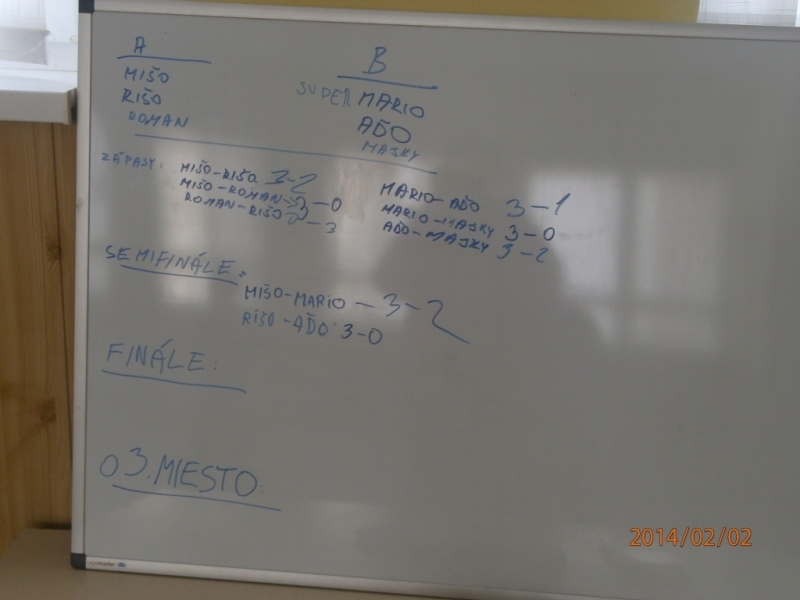 A
MIŠO
RIŠO
ROMAN
B
SUPER MARIO
AĎO
MAJKY
ZÁPASY:
MIŠO-RIŠO 3-2
MIŠO-ROMAN 3-0
ROMAN-RIŠO 0-3
MARIO-AĎO 3-1
MARIO-MAJKY 3-0
AĎO-MAJKY 3-2
SEMIFINÁLE:
MIŠO-MARIO - 3-2
RIŠO-AĎO: 3-0
FINÁLE:
O 3. MIESTO:
2014/02/02